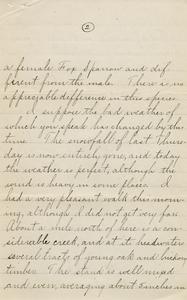 2
a female Fox Sparrow and dif-
ferent from the male. There is no
appreciable difference in this species.
I suppose the bad weather of
which you speak has changed by this
time. The snowfall of last Thurs-
day is now entirely gone, and today
the weather is perfect, although the
wind is heavy in some places. I
had a very pleasant walk this morn-
ing, although I did not get very far.
About a mile north of here is a con-
siderable creek, and at its headwaters
several tracts of young oak and hickory
timber. The stand is well mixed
and even, averaging about inches in